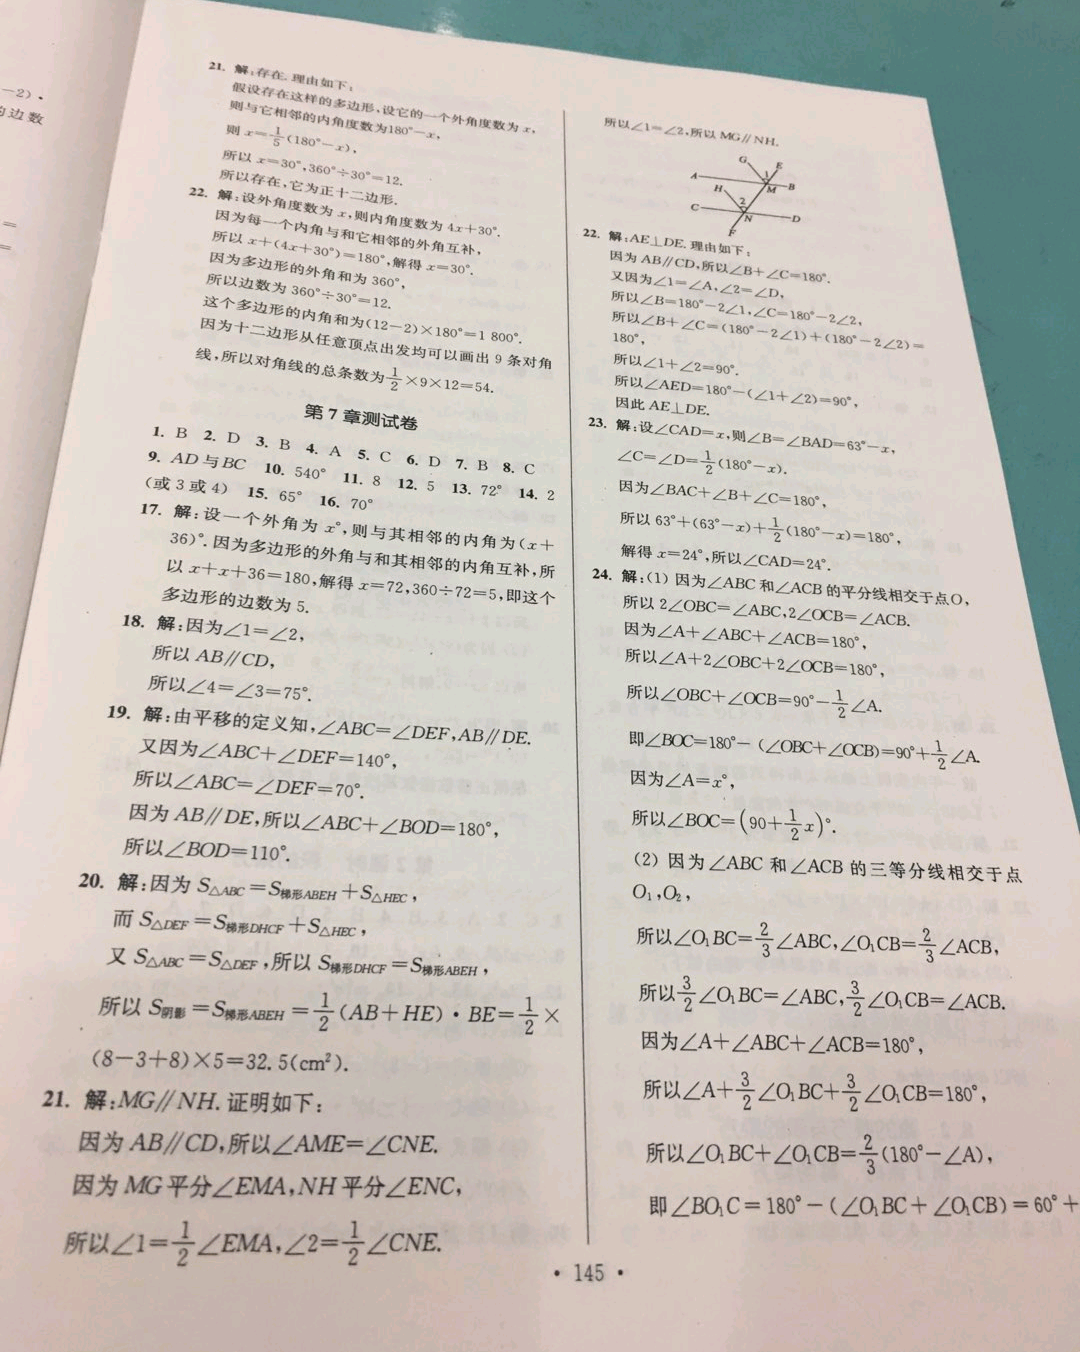 -2).
的边数
=
=
21. 解:存在.理由如下:
假设存在这样的多边形,设它的一个外角度数为 x,
则与它相邻的内角度数为180°-x,
则 x=1/5(180°-x),
所以 x=30°,360°÷30°=12.
所以存在,它为正十二边形.
22. 解:设外角度数为 x,则内角度数为 4x+30°.
因为每一个内角与和它相邻的外角互补,
所以 x+(4x+30°)=180°,解得 x=30°.
因为多边形的外角和为 360°,
所以边数为 360°÷30°=12.
这个多边形的内角和为(12-2)×180°=1 800°.
因为十二边形从任意顶点出发均可以画出 9 条对角
线,所以对角线的总条数为1/2×9×12=54.
第 7 章测试卷
1. B 2. D 3. B 4. A 5. C 6. D 7. B 8. C
9. AD 与 BC 10. 540° 11. 8 12. 5 13. 72° 14. 2
(或 3 或 4) 15. 65° 16. 70°
17. 解:设一个外角为 x°,则与其相邻的内角为(x+
36)°.因为多边形的外角与和其相邻的内角互补,所
以 x+x+36=180,解得 x=72,360÷72=5,即这个
多边形的边数为 5.
18. 解:因为∠1=∠2,
所以 AB∥CD,
所以∠4=∠3=75°.
19. 解:由平移的定义知,∠ABC=∠DEF,AB∥DE.
又因为∠ABC+∠DEF=140°,
所以∠ABC=∠DEF=70°.
因为 AB∥DE,所以∠ABC+∠BOD=180°,
所以∠BOD=110°.
20. 解:因为 S△ABC=S梯形ABEH+S△HEC,
而 S△DEF=S梯形DHCF+S△HEC,
又 S△ABC=S△DEF,所以 S梯形DHCF=S梯形ABEH,
所以 S阴影=S梯形ABEH=1/2(AB+HE)·BE=1/2×
(8-3+8)×5=32.5(cm²).
21. 解:MG∥NH.证明如下:
因为 AB∥CD,所以∠AME=∠CNE.
因为 MG 平分∠EMA,NH 平分∠ENC,
所以∠1=1/2∠EMA,∠2=1/2∠CNE.
所以∠1=∠2,所以 MG∥NH.
G E
A 1 B
H M
C 2 D
N
F
22. 解:AE⊥DE.理由如下:
因为 AB∥CD,所以∠B+∠C=180°.
又因为∠1=∠A,∠2=∠D,
所以∠B=180°-2∠1,∠C=180°-2∠2,
所以∠B+∠C=(180°-2∠1)+(180°-2∠2)=
180°,
所以∠1+∠2=90°.
所以∠AED=180°-(∠1+∠2)=90°,
因此 AE⊥DE.
23. 解:设∠CAD=x,则∠B=∠BAD=63°-x,
∠C=∠D=1/2(180°-x).
因为∠BAC+∠B+∠C=180°,
所以 63°+(63°-x)+1/2(180°-x)=180°,
解得 x=24°,所以∠CAD=24°.
24. 解:(1) 因为∠ABC 和∠ACB 的平分线相交于点O,
所以 2∠OBC=∠ABC,2∠OCB=∠ACB.
因为∠A+∠ABC+∠ACB=180°,
所以∠A+2∠OBC+2∠OCB=180°,
所以∠OBC+∠OCB=90°-1/2∠A.
即∠BOC=180°-(∠OBC+∠OCB)=90°+1/2∠A.
因为∠A=x°,
所以∠BOC=(90+1/2x)°.
(2) 因为∠ABC 和∠ACB 的三等分线相交于点
O₁,O₂,
所以∠O₁BC=2/3∠ABC,∠O₁CB=2/3∠ACB,
所以3/2∠O₁BC=∠ABC,3/2∠O₁CB=∠ACB.
因为∠A+∠ABC+∠ACB=180°,
所以∠A+3/2∠O₁BC+3/2∠O₁CB=180°,
所以∠O₁BC+∠O₁CB=2/3(180°-∠A),
即∠BO₁C=180°-(∠O₁BC+∠O₁CB)=60°+
· 145 ·